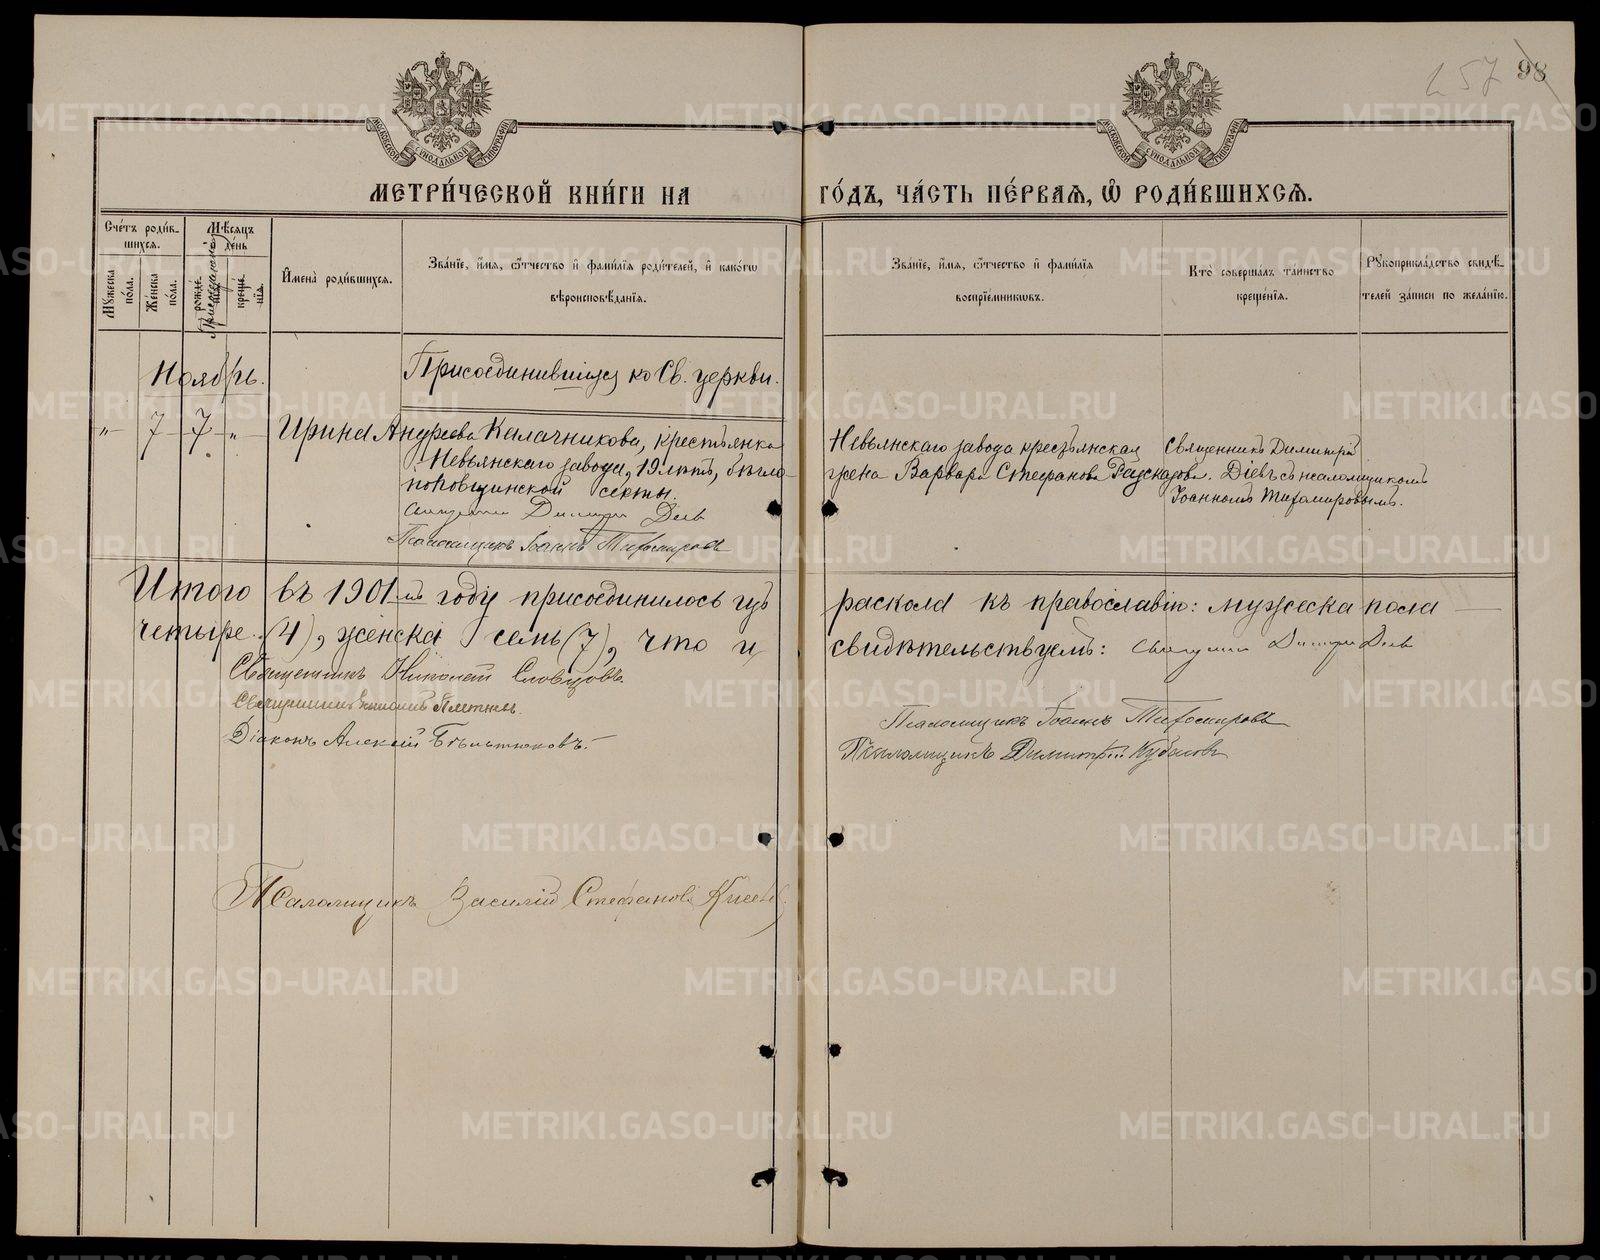 257 98
МОСКОВСКОЙ СѴНОДАЛЬНОЙ ТИПОГРАФІИ
МОСКОВСКОЙ СѴНОДАЛЬНОЙ ТИПОГРАФІИ
МЕТРИ́ЧЕСКОЙ КНИ́ГИ НА ГО́ДЪ, ЧА́СТЬ ПЕ́РВАѦ, Ѡ҆ РОДИ́ВШИХСѦ.
Сче́тъ роди́в-
шихсѧ.
Мꙋжеска по́ла.
Же́нска по́ла.
Мѣ́сѧцъ
де́нь
рожде́-
креще́-
нїѧ.
Присоединенія
И҆мена̀ роди́вшихсѧ.
Зва́нїе, и҆́мѧ, ѻ҆́тчество и҆ фами́лїѧ роди́телей, и҆ како́гѡ
вѣроисповѣ́данїѧ.
Зва́нїе, и҆́мѧ, ѻ҆́тчество и҆ фами́лїѧ
воспрїе́мникѡвъ.
Кто̀ соверша́лъ та́инство
креще́нїѧ.
Рꙋкоприкла́дство свидѣ́-
телей за́писи по жела́нїю.
Ноябрь.
Присоединившіеся ко Св. церкви.
„ 7 7 „ Ирина Андреева Калачникова, крестьянка
Невьянскаго завода, 19 лѣтъ, бѣгло-
поповщинской секты.
Священникъ Димитрій Діевъ
Псаломщикъ Іоаннъ Тихомировъ
Невьянскаго завода крестьянская
жена Варвара Стефанова
Священникъ Димитрій
Діевъ съ псаломщикомъ
Іоанномъ Тихомировымъ.
Итого въ 1901-мъ году присоединилось изъ раскола къ православію: мужеска пола
четыре (4), женска семь (7), что и свидѣтельствуемъ: Священникъ Димитрій Діевъ
Священникъ Николай Словцовъ.
Священникъ
Діаконъ Алексій Бѣльтюковъ.
Псаломщикъ Іоаннъ Тихомировъ
Псаломщикъ Димитрій
Псаломщикъ Василій Стефановъ
METRIKI.GASO-URAL.RU